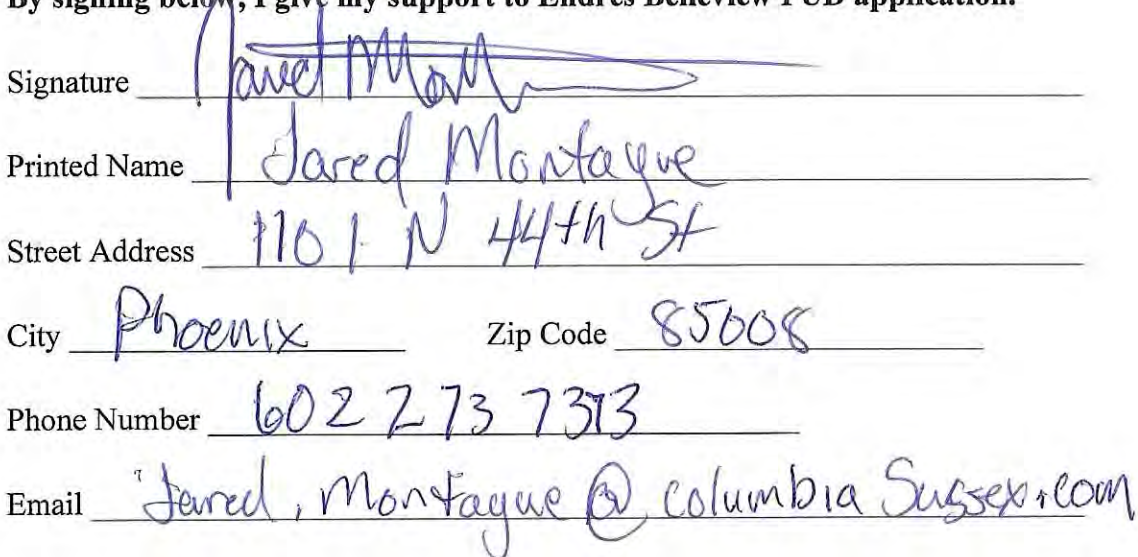 By signing below, I give my support to Endres Belleview PUD application.
Signature
Printed Name Jared Montague
Street Address 1101 N 44th St
City Phoenix Zip Code 85008
Phone Number 602 273 7373
Email Jared.Montague@columbiaSussex.com